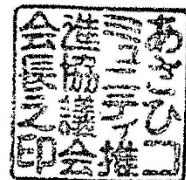 あさひコ
ミュニティ推
進協議会
会長之印